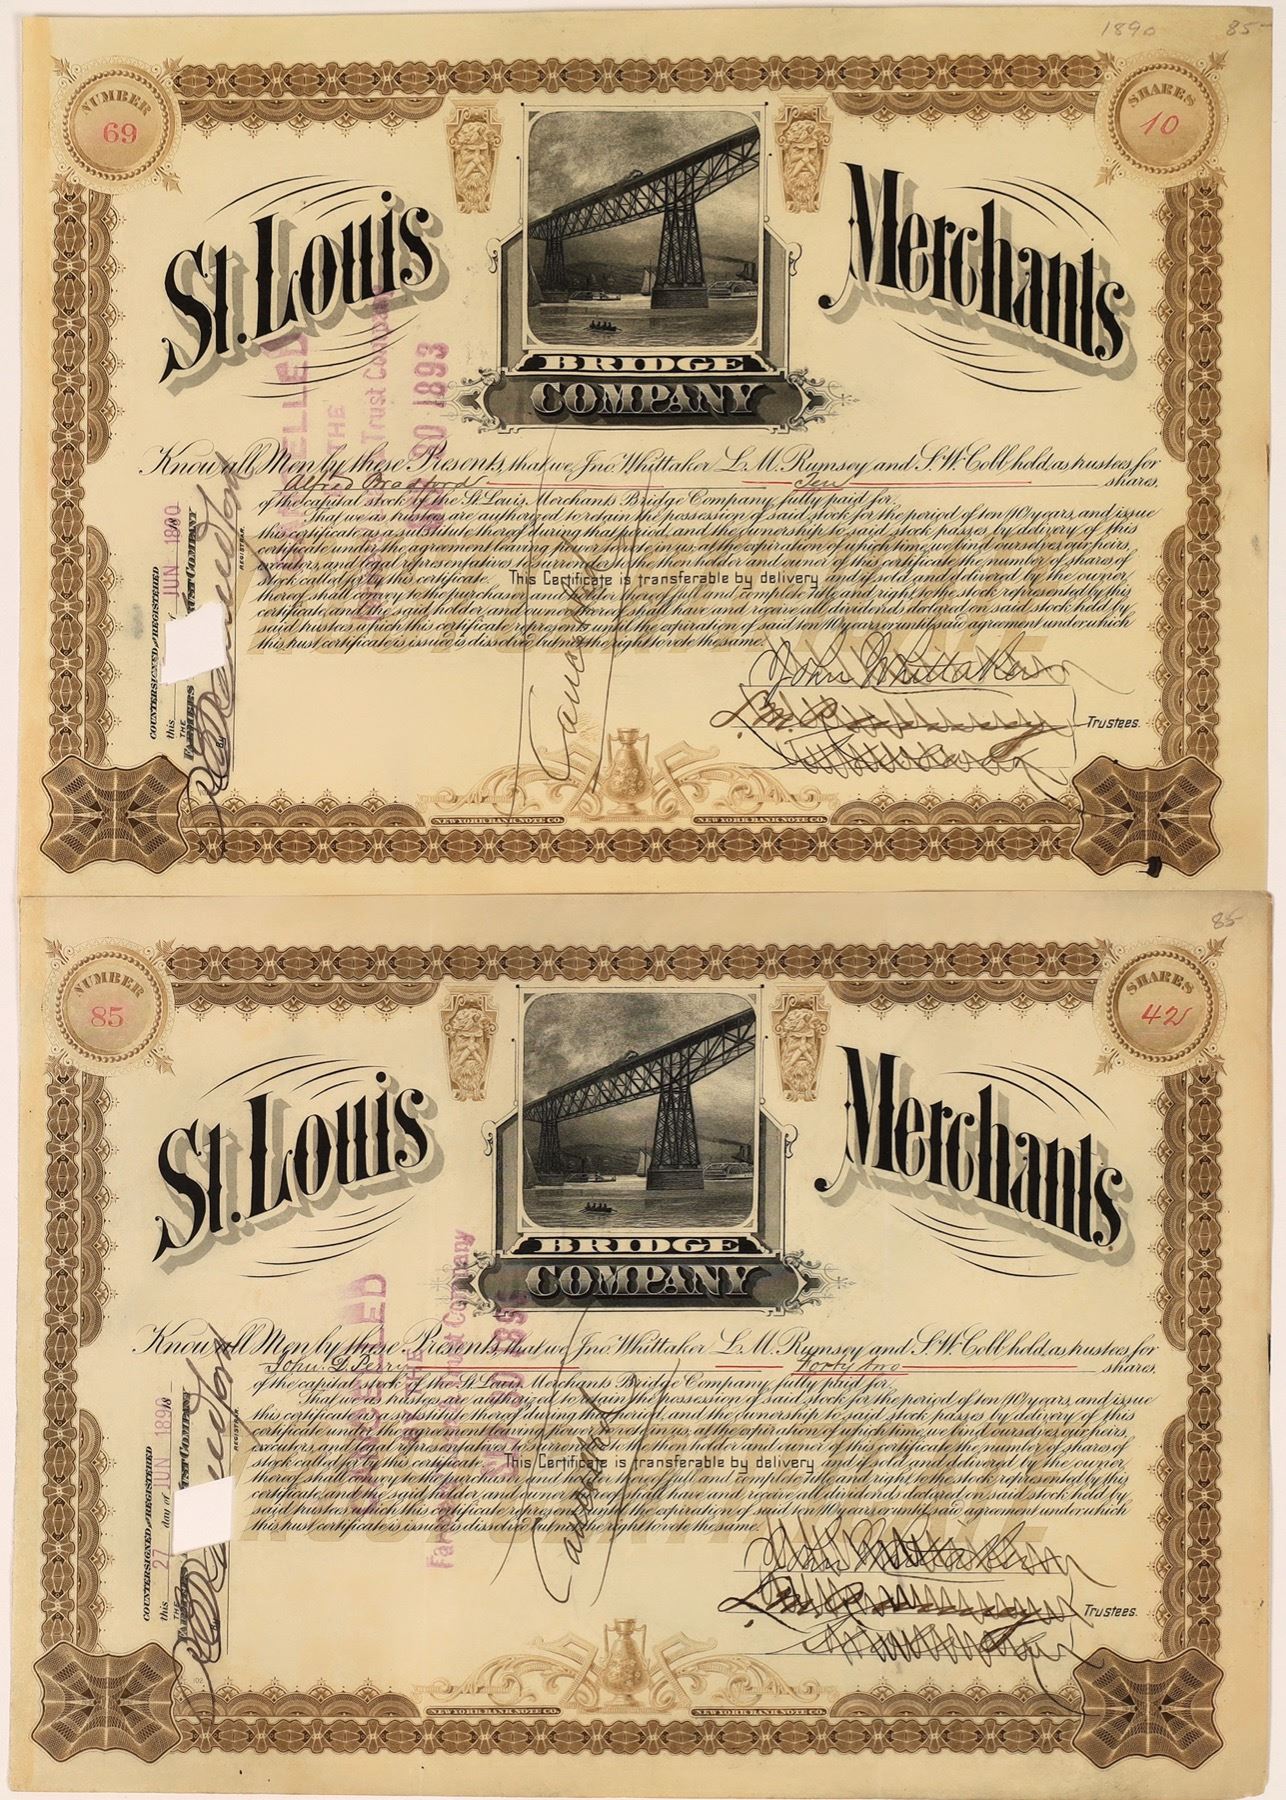 1890 85-
NUMBER
69
SHARES
10
St. Louis Merchants
BRIDGE
COMPANY
Know all Men by these Presents, that we Jno. Whittaker L. M. Rumsey and S. W. Cobb hold, as trustees, for
Alfred Bradford Ten shares,
of the capital stock of the St Louis Merchants Bridge Company fully paid for.
That we as trustees are authorized to retain the possession of said stock for the period of ten /10/ years, and issue
this certificate as a substitute thereof during that period, and the ownership to said stock passes by delivery of this
certificate under the agreement leaving power to vote in us; at the expiration of which time, we bind ourselves, our heirs,
executors, and legal representatives to surrender to the then holder and owner of this certificate the number of shares of
stock called for by this certificate. This Certificate is transferable by delivery and if sold and delivered by the owner,
thereof shall convey to the purchaser and holder thereof full and complete title and right to the stock represented by this
certificate, and the said holder and owner thereof shall have and receive all dividends declared on said stock held by
said trustees which this certificate represents until the expiration of said ten /10/ years or until said agreement under which
this trust certificate is issued is dissolved but not the right to vote the same.
John Whittaker
L. M. Rumsey
Trustees.
COUNTERSIGNED and REGISTERED
this JUN 1890
THE FARMERS TRUST COMPANY
By
REGISTRAR.
CANCELLED
THE
Trust Company
30 1893
Cancelled
NEW YORK BANK NOTE CO. NEW YORK BANK NOTE CO.
85
NUMBER
85
SHARES
42
St. Louis Merchants
BRIDGE
COMPANY
Know all Men by these Presents, that we Jno. Whittaker L. M. Rumsey and S. W. Cobb hold, as trustees, for
John D. Perry Forty two shares,
of the capital stock of the St Louis Merchants Bridge Company fully paid for.
That we as trustees are authorized to retain the possession of said stock for the period of ten /10/ years, and issue
this certificate as a substitute thereof during that period, and the ownership to said stock passes by delivery of this
certificate under the agreement leaving power to vote in us; at the expiration of which time, we bind ourselves, our heirs,
executors, and legal representatives to surrender to the then holder and owner of this certificate the number of shares of
stock called for by this certificate. This Certificate is transferable by delivery and if sold and delivered by the owner,
thereof shall convey to the purchaser and holder thereof full and complete title and right to the stock represented by this
certificate, and the said holder and owner thereof shall have and receive all dividends declared on said stock held by
said trustees which this certificate represents until the expiration of said ten /10/ years or until said agreement under which
this trust certificate is issued is dissolved but not the right to vote the same.
John Whittaker
L. M. Rumsey
Trustees.
COUNTERSIGNED and REGISTERED
this 27 day of JUN 1890
THE FARMERS TRUST COMPANY
By
REGISTRAR.
CANCELLED
THE
Trust Company
Cancelled
NEW YORK BANK NOTE CO. NEW YORK BANK NOTE CO.